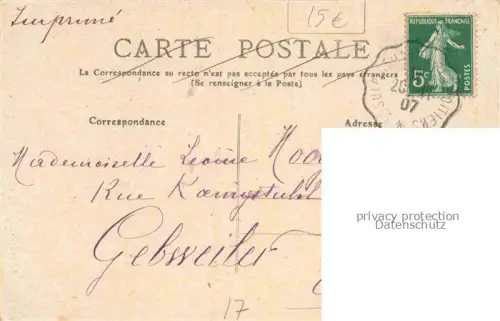 Imprimé
15€
CARTE POSTALE
RÉPUBLIQUE FRANÇAISE
5c
POSTES
La Correspondance au recto n'est pas acceptée par tous les pays étrangers
(Se renseigner à la Poste)
07
Correspondance
Adresse
Mademoiselle Léonie
Rue
Gebweiler
17
privacy protection
Datenschutz